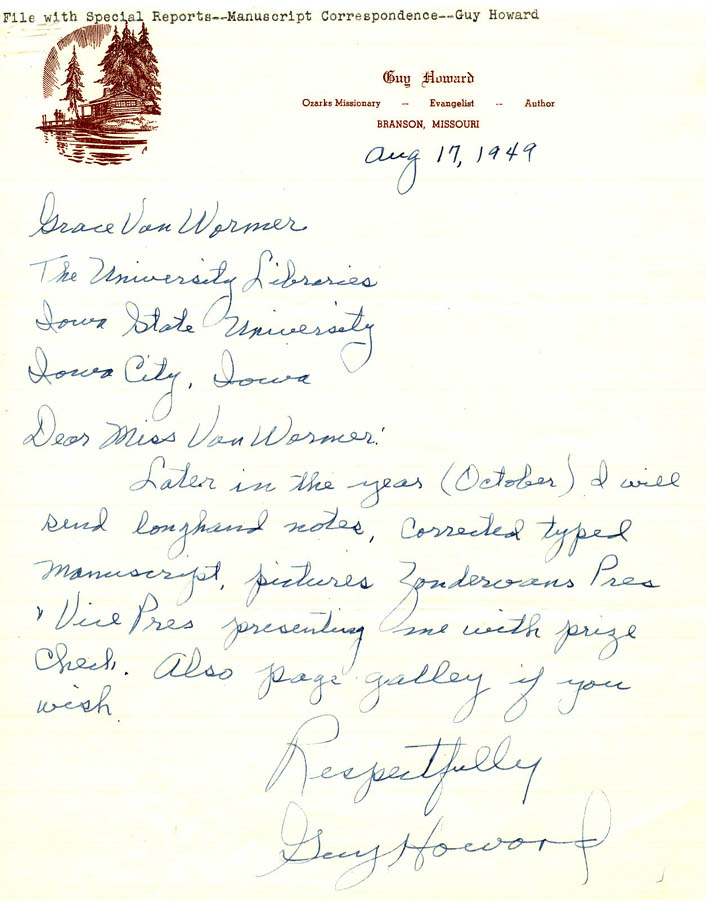 File with Special Reports--Manuscript Correspondence--Guy Howard
Guy Howard
Ozarks Missionary -- Evangelist -- Author
BRANSON, MISSOURI
Aug 17, 1949
Grace Van Wormer
The University Libraries
Iowa State University
Iowa City, Iowa
Dear Miss Van Wormer:
Later in the year (October) I will
send longhand notes, corrected typed
manuscript, pictures Zondervans Pres
" Vice Pres presenting me with prize
check. Also page galley if you
wish.
Respectfully
Guy Howard